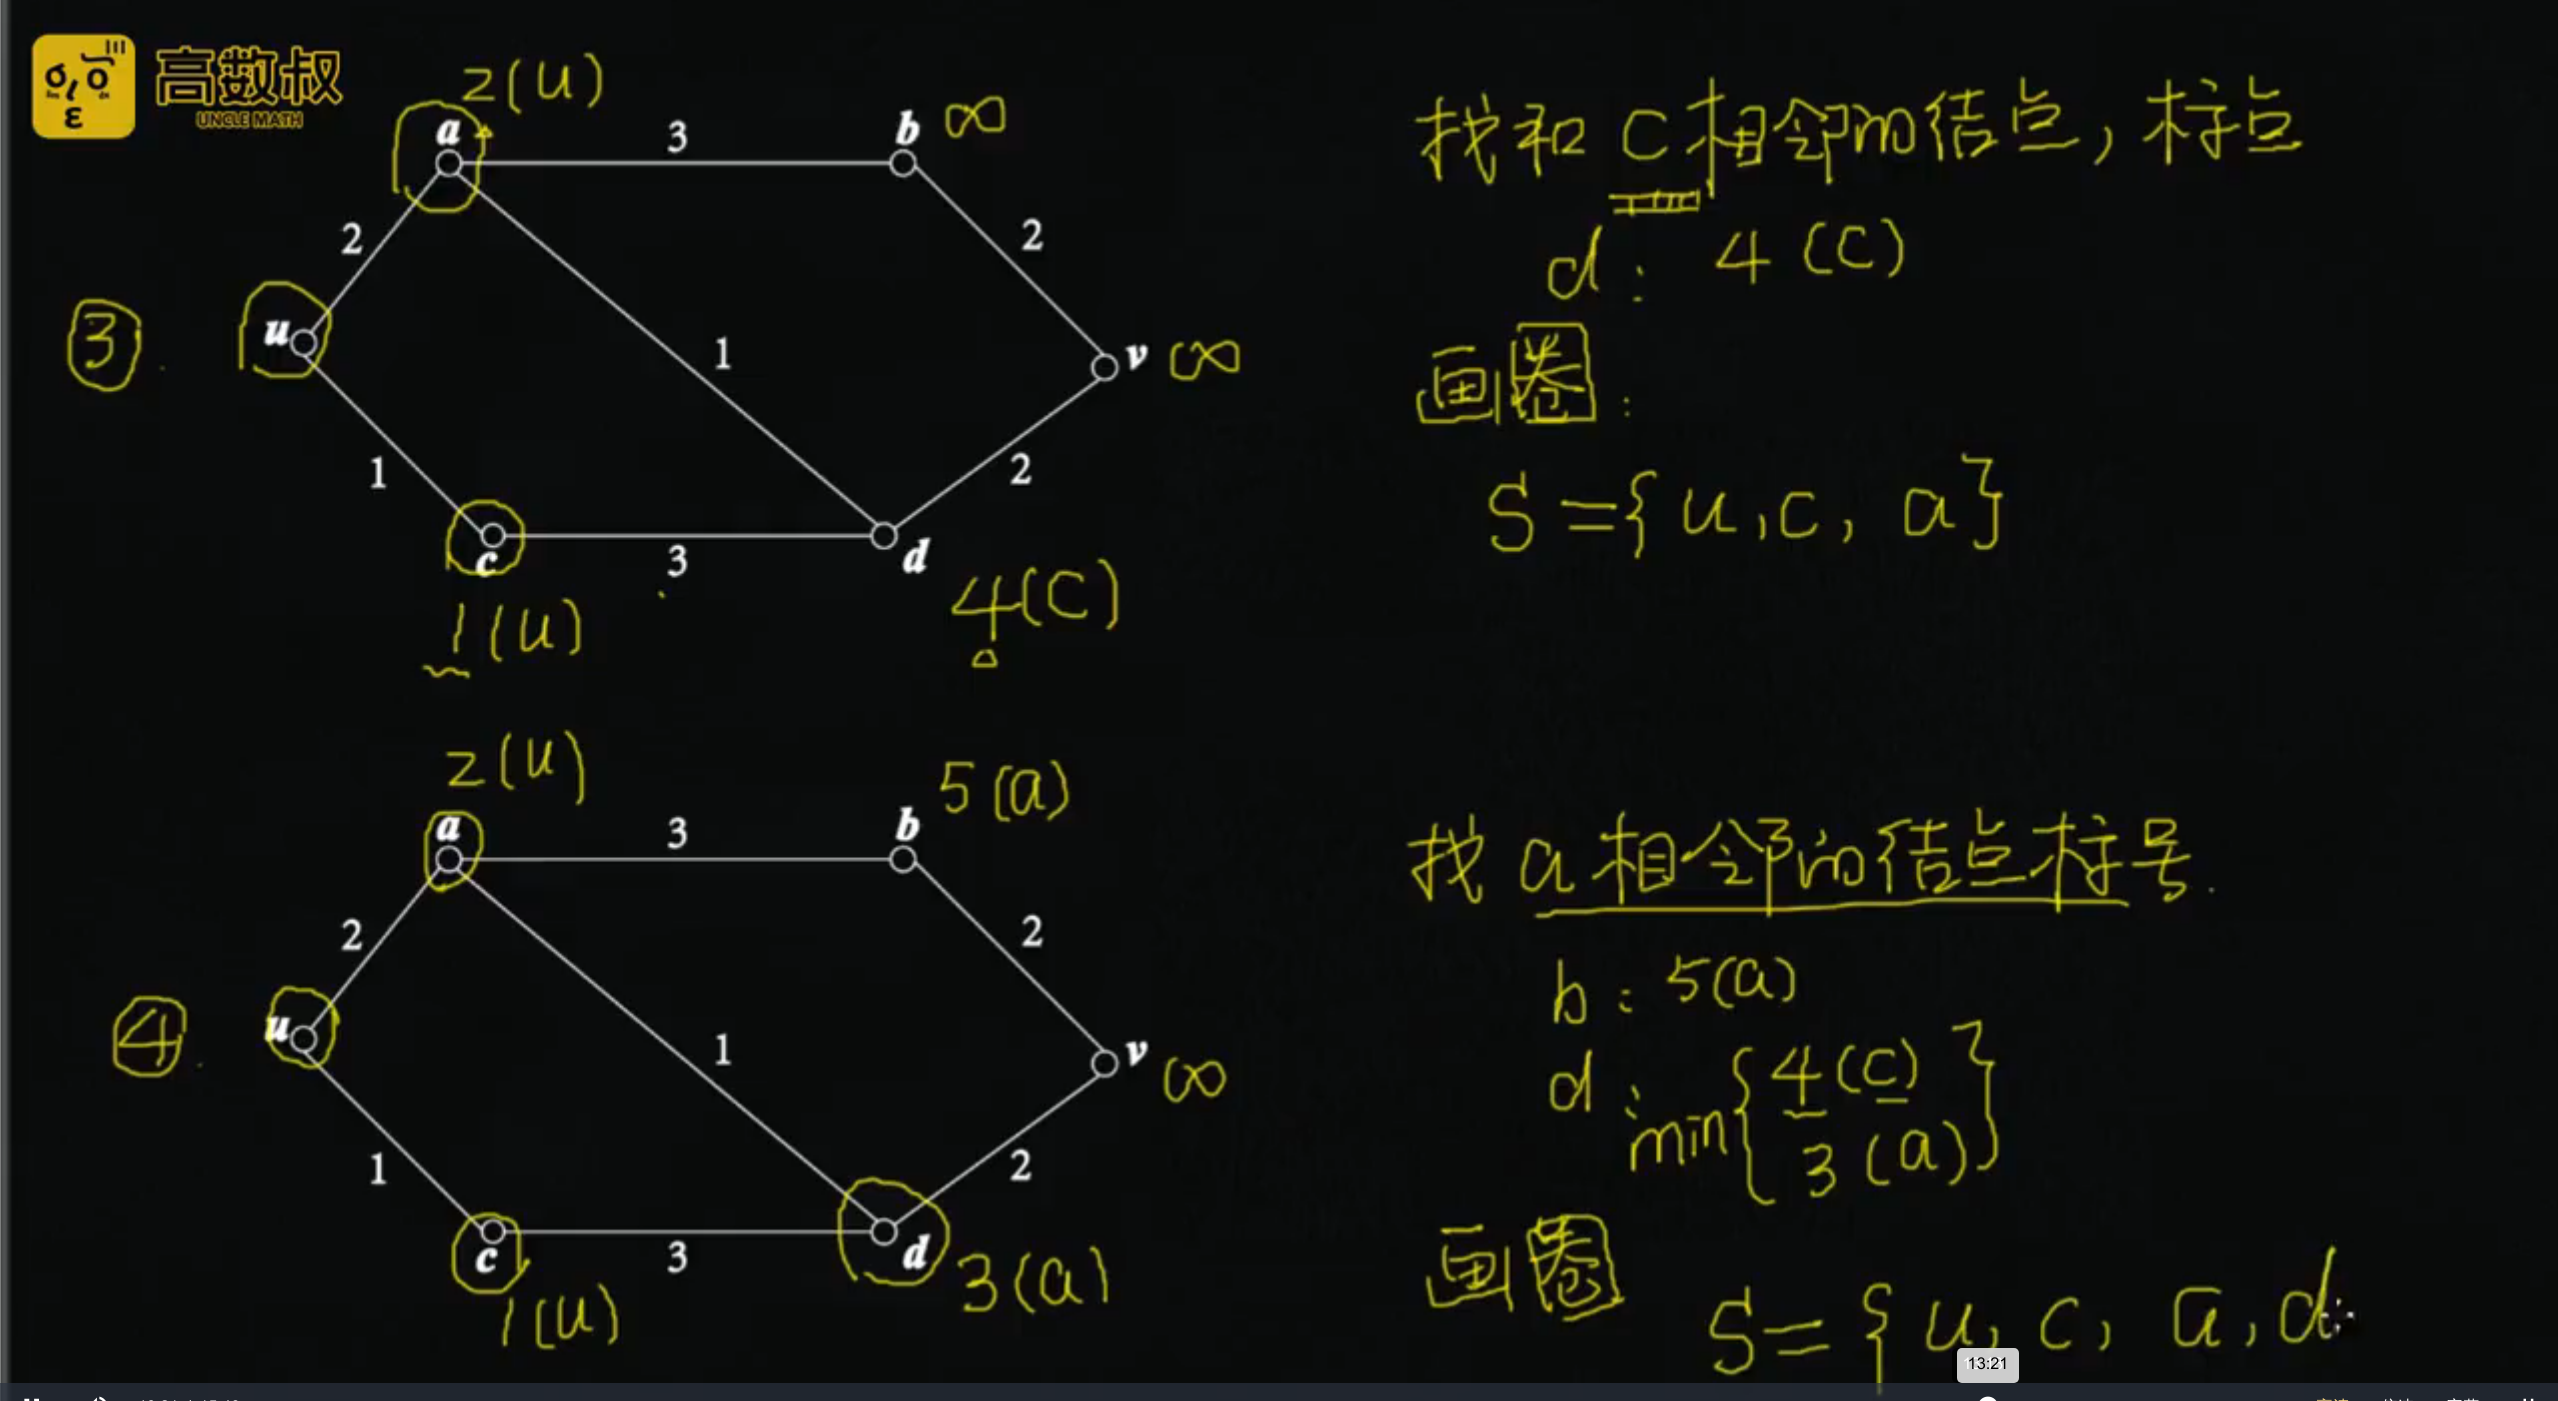 高数叔
UNCLE MATH
2(u)
a
3
b
∞
2
2
③.
u
1
v
∞
1
2
c
3
d
1(u)
4(C)
找和C相邻的结点,标点
d: 4(C)
画圈:
S={u,c, a}
2(u)
5(a)
a
3
b
2
2
④.
u
1
v
∞
1
2
c
3
d
3(a)
1(u)
找a相邻的结点标号.
b: 5(a)
d: min{4(C)
3(a)}
画圈
S={u, c, a, d
13:21